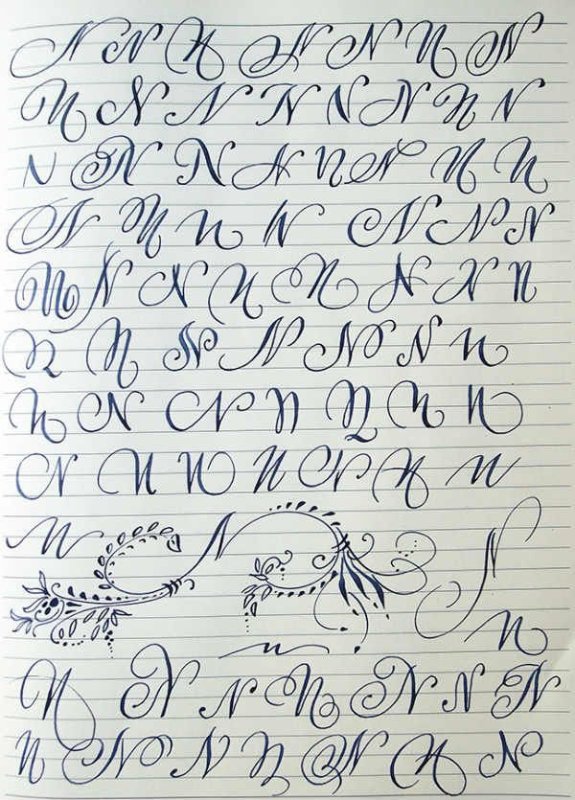 N N N N N N N
N N N N N N N N
N N N N N N N N
N N N N N N N
N N N N N N N N
N N N N N N N
N N N N N N N
N N N N N N N
N N N
N N
N N N N N N N
N N N N N N N